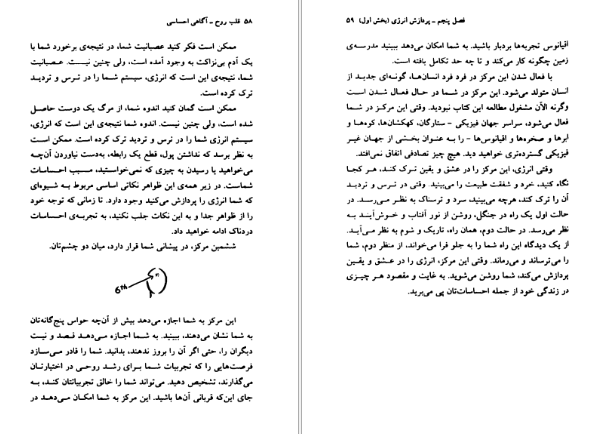 ۵۸ قلب روح ـ آگاهی احساسی
ممکن است فکر کنید عصبانیت شما، در نتیجه‌ی برخورد شما با
یک آدم بی‌نزاکت به وجود آمده است، ولی چنین نیست. عصبانیت
شما، نتیجه‌ی این است که انرژی، سیستم شما را در ترس و تردید
ترک کرده است.
ممکن است گمان کنید اندوه شما، از مرگ یک دوست حاصل
شده است، ولی چنین نیست. اندوه شما نتیجه‌ی این است که انرژی،
سیستم انرژی شما را در ترس و تردید ترک کرده است. ممکن است
به نظر برسد که نداشتن پول، قطع یک رابطه، به‌دست نیاوردن آن‌چه
می‌خواهید یا رسیدن به چیزی که نمی‌خواستید، مسبب احساسات
شماست. در زیر همه‌ی این ظواهر نکاتی اساسی مربوط به شیوه‌ای
که شما انرژی را پردازش می‌کنید وجود دارد. تا زمانی که توجه خود
را از ظواهر جدا و به این نکات جلب نکنید، به تجربه‌ی احساسات
دردناک ادامه خواهید داد.
ششمین مرکز، در پیشانی شما قرار دارد، میان دو چشم‌تان.
6th
این مرکز به شما اجازه می‌دهد بیش از آن‌چه حواس پنج‌گانه‌تان
به شما نشان می‌دهند، ببینید. به شما اجازه می‌دهد قصد و نیت
دیگران را، حتی اگر آن را بروز ندهند، بدانید. شما را قادر می‌سازد
فرصت‌هایی را که تجربیات شما برای رشد روحی در اختیارتان
می‌گذارند، تشخیص دهید. می‌تواند شما را خالق تجربیاتتان کند، به
جای این‌که قربانی آن‌ها باشید. این مرکز به شما امکان می‌دهد در
فصل پنجم ـ پردازش انرژی (بخش اول) ۵۹
اقیانوس تجربه‌ها بردبار باشید. به شما امکان می‌دهد ببینید مدرسه‌ی
زمین چگونه کار می‌کند و تا چه حد تکامل یافته است.
با فعال شدن این مرکز در فرد فرد انسان‌ها، گونه‌ای جدید از
انسان متولد می‌شود. این مرکز در شما در حال فعال شدن است
وگرنه الآن مشغول مطالعه این کتاب نبودید. وقتی این مرکز در شما
فعال می‌شود، سراسر جهان فیزیکی ـ ستارگان، کهکشان‌ها، کوه‌ها و
ابرها و صخره‌ها و اقیانوس‌ها ـ را به عنوان بخشی از جهان غیر
فیزیکی گسترده‌تری خواهید دید. هیچ چیز تصادفی اتفاق نمی‌افتد.
وقتی انرژی، این مرکز را در عشق و یقین ترک کند، هر کجا
نگاه کنید، خرد و شفقت طبیعت را می‌بینید. وقتی در ترس و تردید
آن را ترک کند، هرچه می‌بینید، سرد و ترسناک به نظر می‌رسد. در
حالت اول یک راه در جنگل، روشن از نور آفتاب و خوش‌آیند به
نظر می‌رسد. در حالت دوم، همان راه، تاریک و شوم به نظر می‌آید.
از یک دیدگاه این راه شما را به جلو فرا می‌خواند، از منظر دوم، شما
را می‌ترساند و می‌رماند. وقتی این مرکز، انرژی را در عشق و یقین
پردازش می‌کند، شما روشن می‌شوید. به غایت و مقصود هر چیزی
در زندگی خود از جمله احساسات‌تان پی می‌برید.